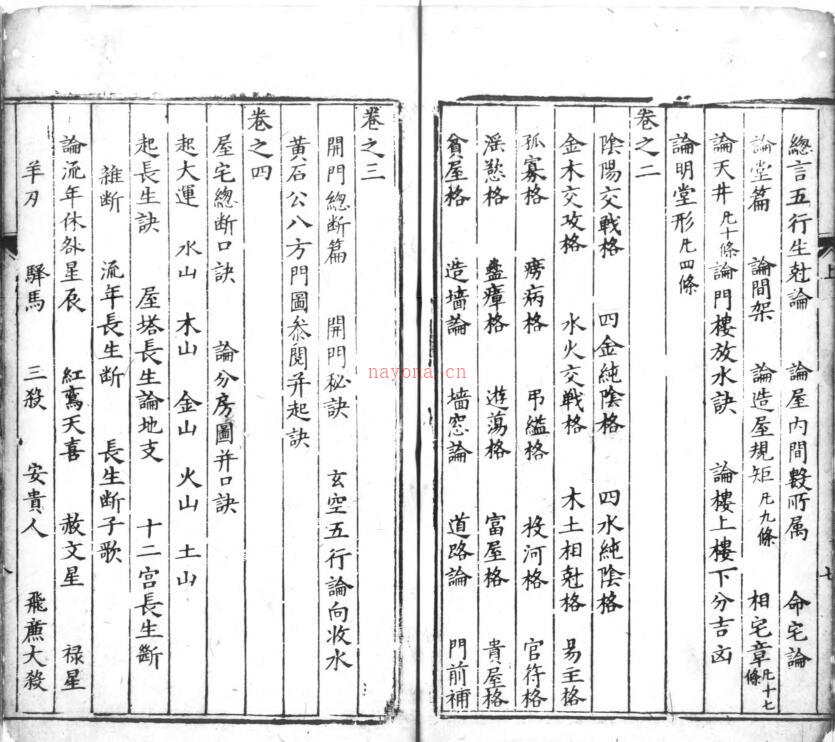 總言五行生尅論 論屋内間數所属 命宅論
論堂篇 論間架 論造屋規矩凡九條 相宅章凡十七條
論天井凡十條 論門樓放水訣 論樓上樓下分吉凶
論明堂形凡四條
卷之二
陰陽交戰格 四金純陰格 四水純陰格
金木交攻格 水火交戰格 木土相尅格 易主格
孤寡格 癆病格 弔縊格 投河格 官符格
滛慾格 蠱瘴格 遊蕩格 富屋格 貴屋格
貧屋格 造墻論 墻窓論 道路論 門前補
上
七
卷之三
開門總斷篇 開門秘訣 玄空五行論向收水
黃石公八方門圖叅閱并起訣
卷之四
屋宅總断口訣 論分房圖并口訣
起大運 水山 木山 金山 火山 土山
起長生訣 屋塔長生論地支 十二宫長生斷
雜断 流年長生断 長生断子歌
論流年休咎星辰 紅鸾天喜 赦文星 禄星
羊刃 驛馬 三殺 安貴人 飛廉大殺
nayona.cn